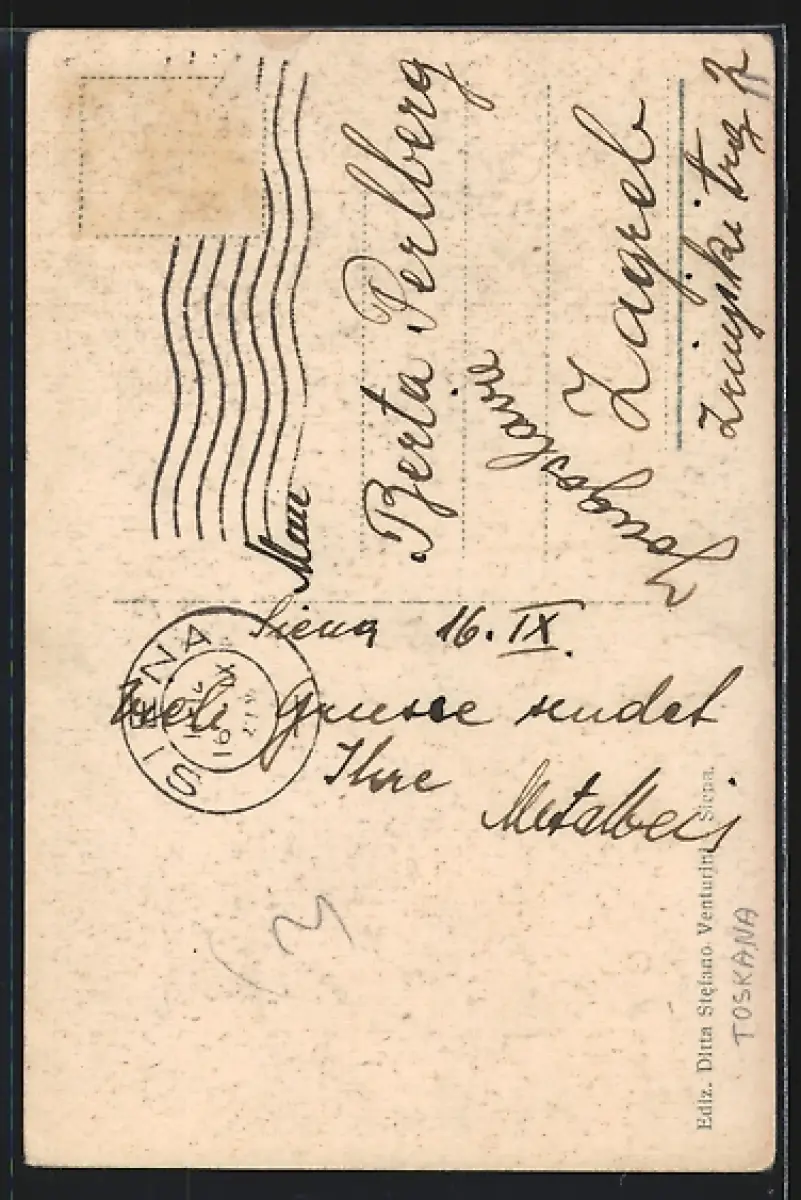 Siena 16. IX.
Viele Gruesse sendet
Ihre
Berta Perlberg
Jougoslavia
Zagreb
Zrinjski trg
SIENA
Ediz. Ditta Stefano Venturini, Siena.
TOSKANA
3